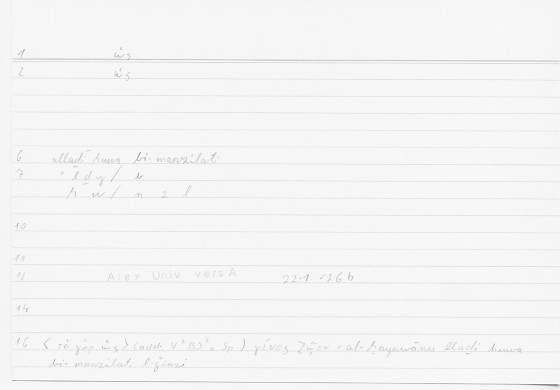 1 ὡς
2 ὡς
6 alladī huwa bi-manzilati
7 ʾ l ḏ y / b
h w / n z l
10
12
13 Alex Univ vers A 22-1 -26 b
14
16 < τὸ γὰρ ὡς > (add. V²B3²a Sp) γένος ζῷον : al-ḥayawānu lladī huwa
bi-manzilati l-ǧinsi